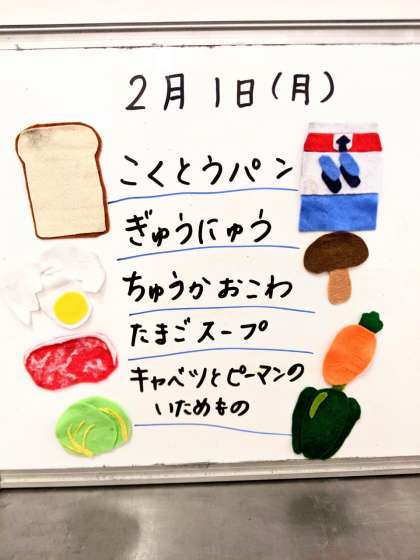 2月1日(月)
こくとうパン
ぎゅうにゅう
ちゅうかおこわ
たまごスープ
キャベツとピーマンの
いためもの